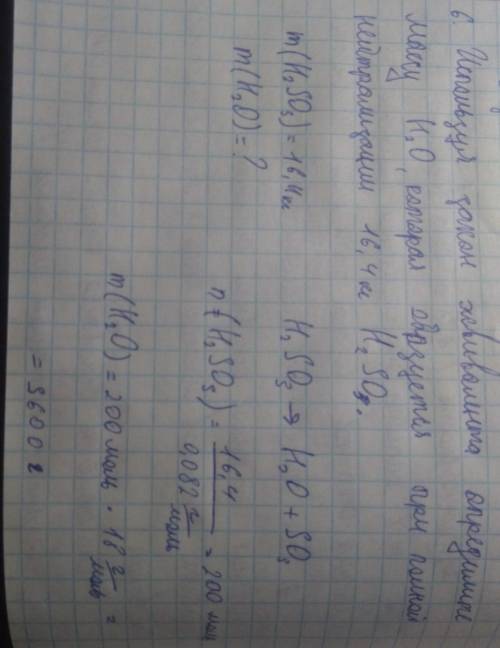 6. Используя закон эквивалента определите
массу H₂O, которая образуется при полной
нейтрализации 16,4 кг H₂SO₃.
m(H₂SO₃) = 16,4 кг
m(H₂O) = ?
H₂SO₃ → H₂O + SO₂
n (H₂SO₃) = 16,4 / 0,082 г/моль = 200 моль
m(H₂O) = 200 моль · 18 г/моль =
= 3600 г